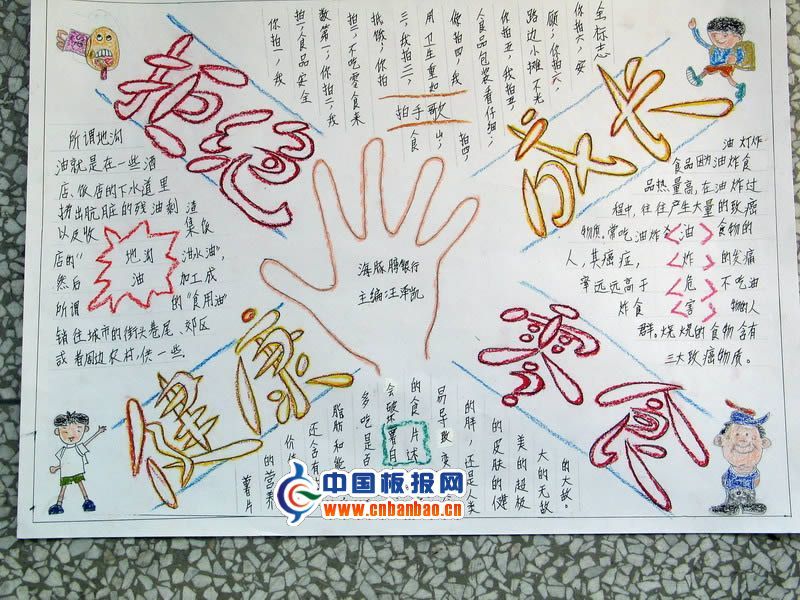 拒绝
成长
健康
零食
你拍一,我
拍一,食品安全
数第一;你拍二,我
拍二,不吃零食来
抵饿,你拍
三,我拍三,
食
用卫生重如
山;
你拍四,我
拍四,
食品包装看仔细;
你拍五,我拍五,
路边小摊不光
顾,你拍六,
你拍六,安
全标志
拍手歌
所谓地沟
油就是在一些酒
店、饭店的下水道里
捞出肮脏的残油剩渣
以及收集饭
店的“泔水油”
然后加工成
所谓的“食用油”
销往城市的街头巷尾、郊区
或者周边农村,供一些
地沟
油
油炸
食品因油炸食
品热量高,在油炸过
程中,往往产生大量的致癌
物质。常吃油炸食物的
人,其癌症,的发病
率远远高于不吃油
炸食物的人
群。烧烧的食物含有
三大致癌物质。
油
炸
危
害
海豚脐银行
主编:汪泽凯
薯片
的营养
价值
还含有
脂肪和能
多吃是否
会破坏
的食
易导致
的胖,还是人类
的皮肤的健
美的超极
大的无敌
的大敌。
薯片
自述
中国板报网
www.cnbanbao.cn